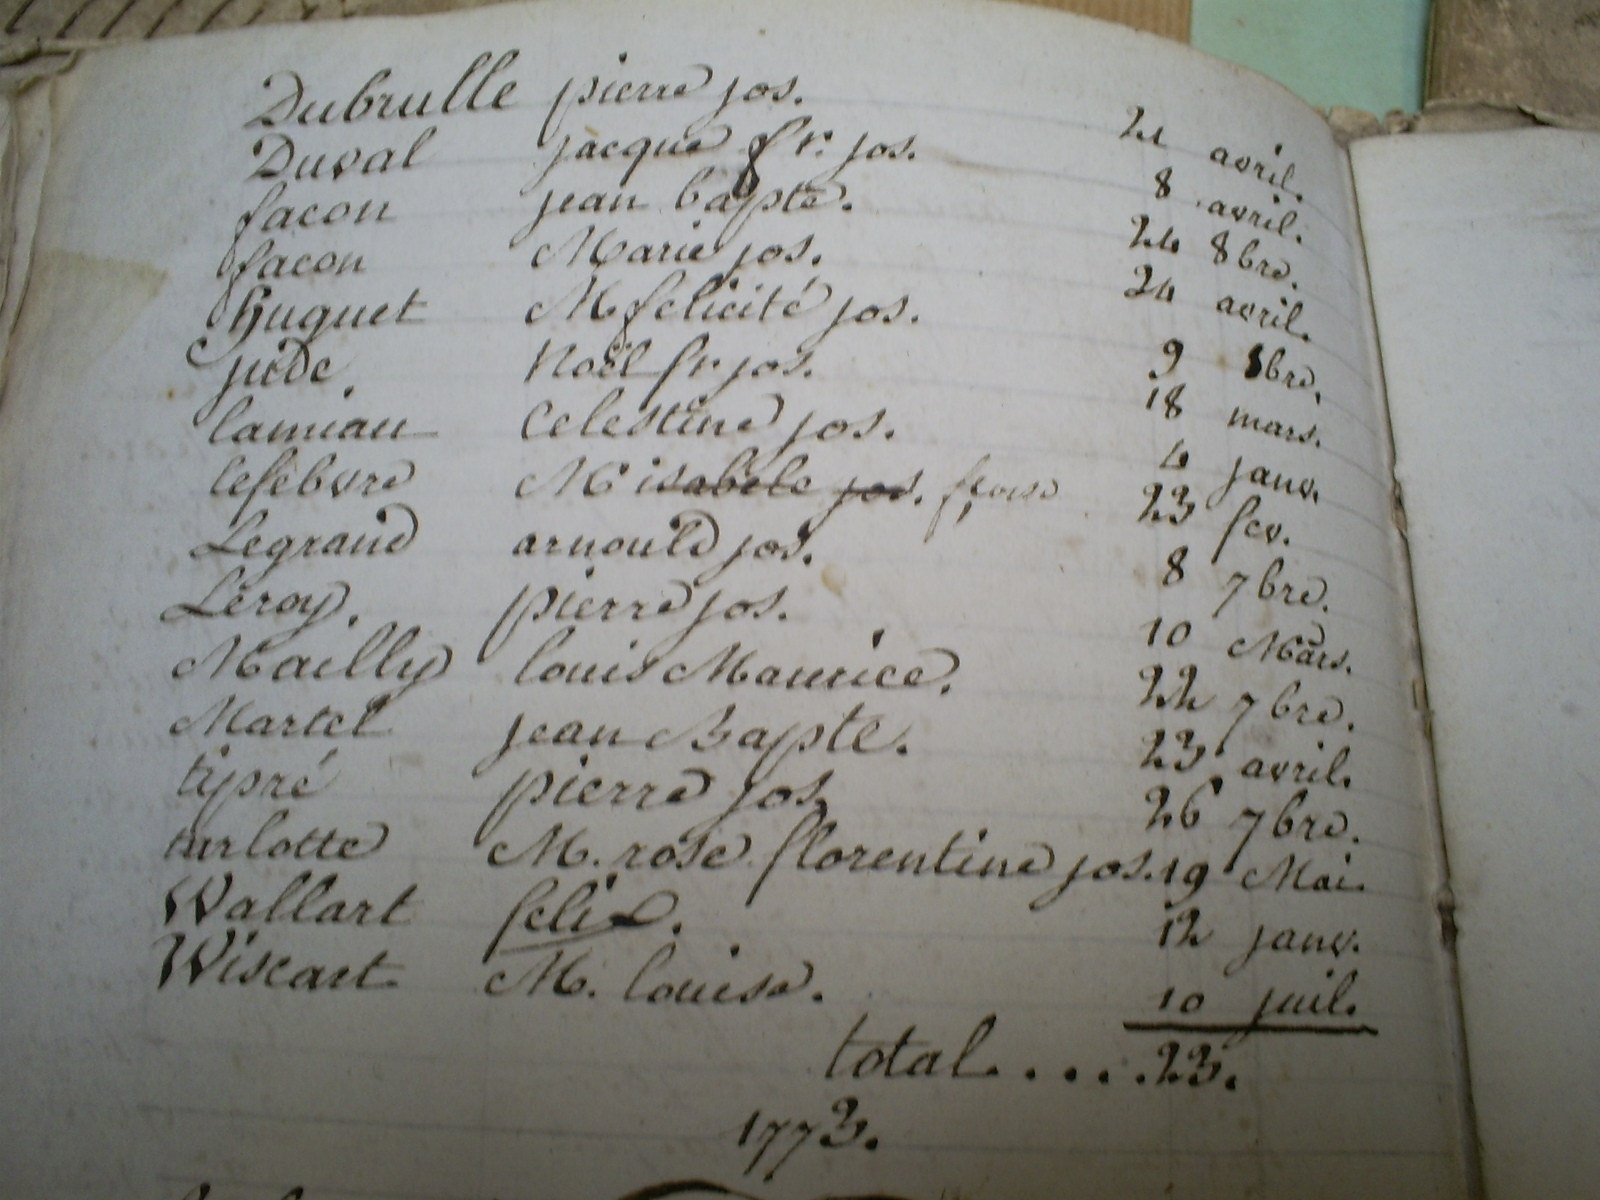 Dubrulle pierre jos. 21 avril.
Duval jacque fr. jos. 8 avril.
facon jean bapte. 24 8bre.
facon Marie jos. 24 avril.
Huguet M felicité jos. 9 8bre.
jude. Noël fr. jos. 18 mars.
lamiau Celestine jos. 4 janv.
lefebvre M isabele jos. fçoise 23 fev.
Legrand arnould jos. 8 7bre.
Leroy. pierre jos. 10 Mars.
Mailly louis Maurice. 22 7bre.
Martel jean Bapte. 23 avril.
tipré pierre jos. 26 7bre.
turlotte M. rose florentine jos. 19 Mai.
Wallart felix. 12 janv.
Wiscart M. louise. 10 juil.
total.....23.
1773.